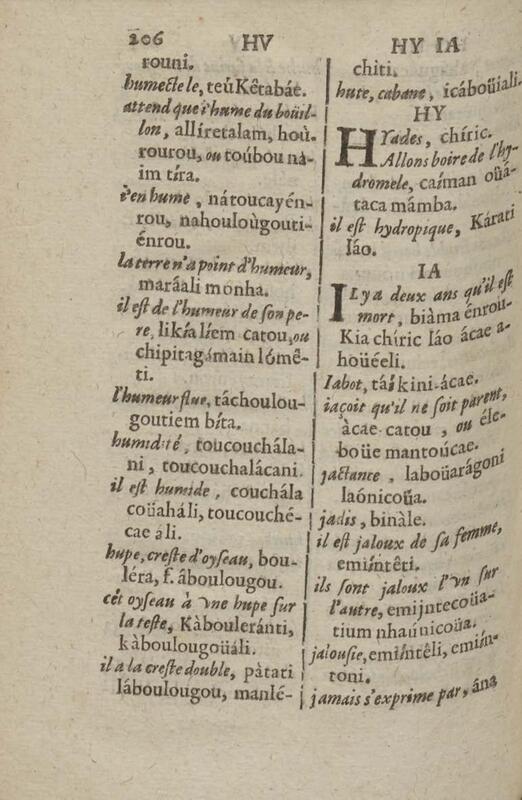 206 HV
rouni.
humecte le, teúKêtabáe.
attend que i'hume du boüil-
lon, alliretalam, hoù
rourou, ou toúbou nà-
im tíra.
i'en hume, nátoucayén-
rou, nahouloùgouti-
énrou.
la terre n'a point d'humeur,
maráali monha.
il est de l'humeur de son pe-
re, likía líem catou, ou
chipitagámain lómê-
ti.
l'humeur flue, táchoulou-
goutiem bíta.
humidité, toucouchála-
ni, toucouchalácani.
il est humide, couchála
coüaháli, toucouché-
cae áli.
hupe, creste d'oyseau, bou-
léra, f. áboulougou.
cét oyseau à vne hupe sur
la teste, Kàbouleránti,
kàboulougoüáli.
il a la creste double, pàtati
láboulougou, manlé-
HY IA
chiti.
hute, cabane, icáboüiali.
HY
HYades, chíric.
Allons boire de l'hy-
dromele, caíman oüá-
taca mámba.
il est hydropique, Kárati
láo.
IA
IL y a deux ans qu'il est
mort, biàma énrou-
Kia chíric láo ácae a-
hoüéeli.
Iabot, táikini-ácae.
iaçoit qu'il ne soit parent,
àcae catou, ou éle-
boüe mantoúcae.
jactance, laboüarágoni
laónicoüa.
jadis, binàle.
il est jaloux de sa femme,
emiíntêti.
ils sont jaloux l'vn sur
l'autre, emijntecoüa-
tium nhaúnicoüa.
jalousie, emiíntêli, emiín-
toni.
jamais s'exprime par, ána